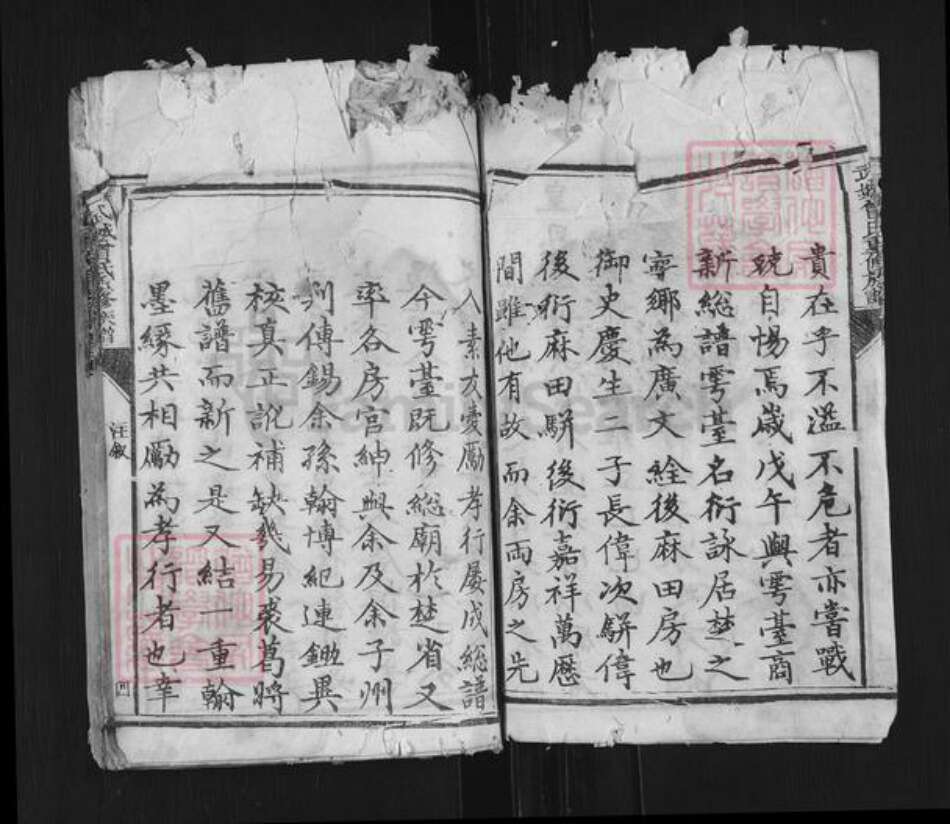 貴在乎不濫不危者亦嘗戰
兢自惕焉歲戊午與雩臺商
新總譜雩臺名衍詠居楚之
寧鄉為廣文絟後麻田房也
御史慶生二子長偉次駢偉
後衍麻田駢後衍嘉祥萬歷
間雖他有故而余兩房之先
入素友愛勵孝行屡成總譜
今雩臺既修總廟於楚省又
率各房官紳與余及余子州
判傳錫余孫翰博紀連鋤異
校真正訛補缺幾易裘葛將
舊譜而新之是又結一重翰
墨緣共相勵為孝行者也幸
武城曾氏重修族譜
汪敘
四